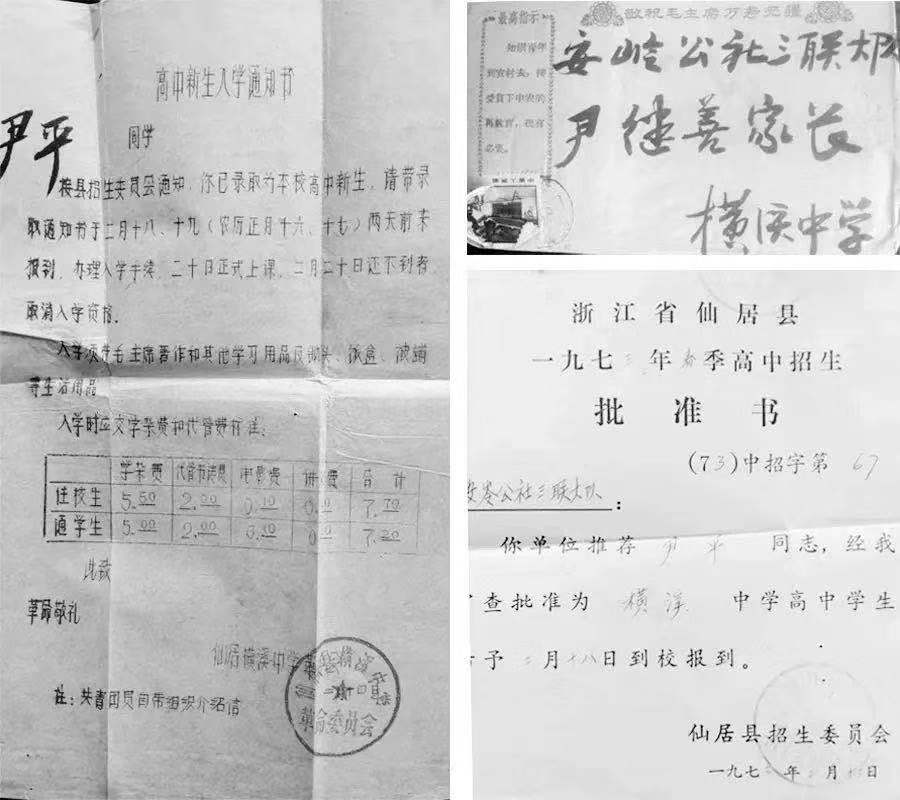 高中新生入学通知书
尹平
同学
接县招生委员会通知，你已录取为本校高中新生，请带录
取通知书于二月十八、十九（农历正月十六、十七）两天前来
报到，办理入学手续，二十日正式上课，二月二十日还不到者，
取消入学资格。
入学须带毛主席著作和其他学习用品及锄头、饭盒、
等生活用品
入学时应交学杂费和代管费标准：
学杂费 代管书簿费 电影费 费 合计
住校生 5.50 2.00 0.10 7.70
通学生 5.00 2.00 0.10 7.20
此致
革命敬礼
仙居横溪中学
革命委员会
注：共青团员自带组织介绍信
最高指示
敬祝毛主席万寿无疆
知识青年
到农村去，接
受贫下中农的
再教育，很有
必要。
安岭公社三联大队
尹继善家长
横溪中学
浙江省仙居县
一九七三年春季高中招生
批准书
(73)中招字第 67
安岺公社三联大队：
你单位推荐 尹平 同志，经我
查批准为 横洋 中学高中学生
予二月十八日到校报到。
仙居县招生委员会
一九七 年 月 日